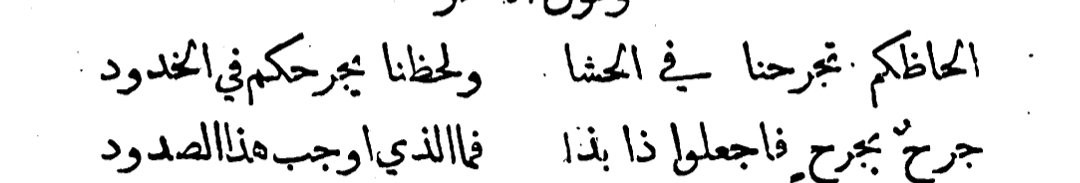 الحاظكم تجرحنا في الحشا ولحظنا يجرحكم في الخدود
جرحٌ بجرحٍ فاجعلوا ذا بذا فما الذي اوجب هذا الصدود